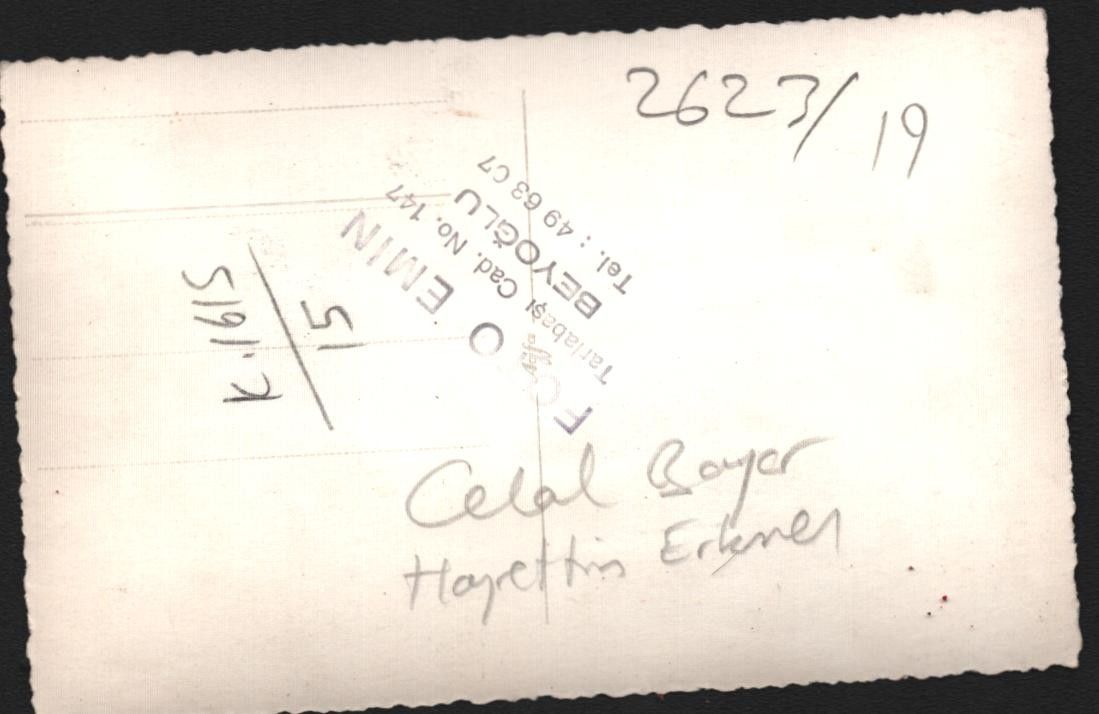 2623/19
FOTO EMIN
Tarlabaşı Cad. No. 147
BEYOĞLU
Tel. : 49 63 07
K.1615
15
Celal Bayar
Hayrettin Erkmen